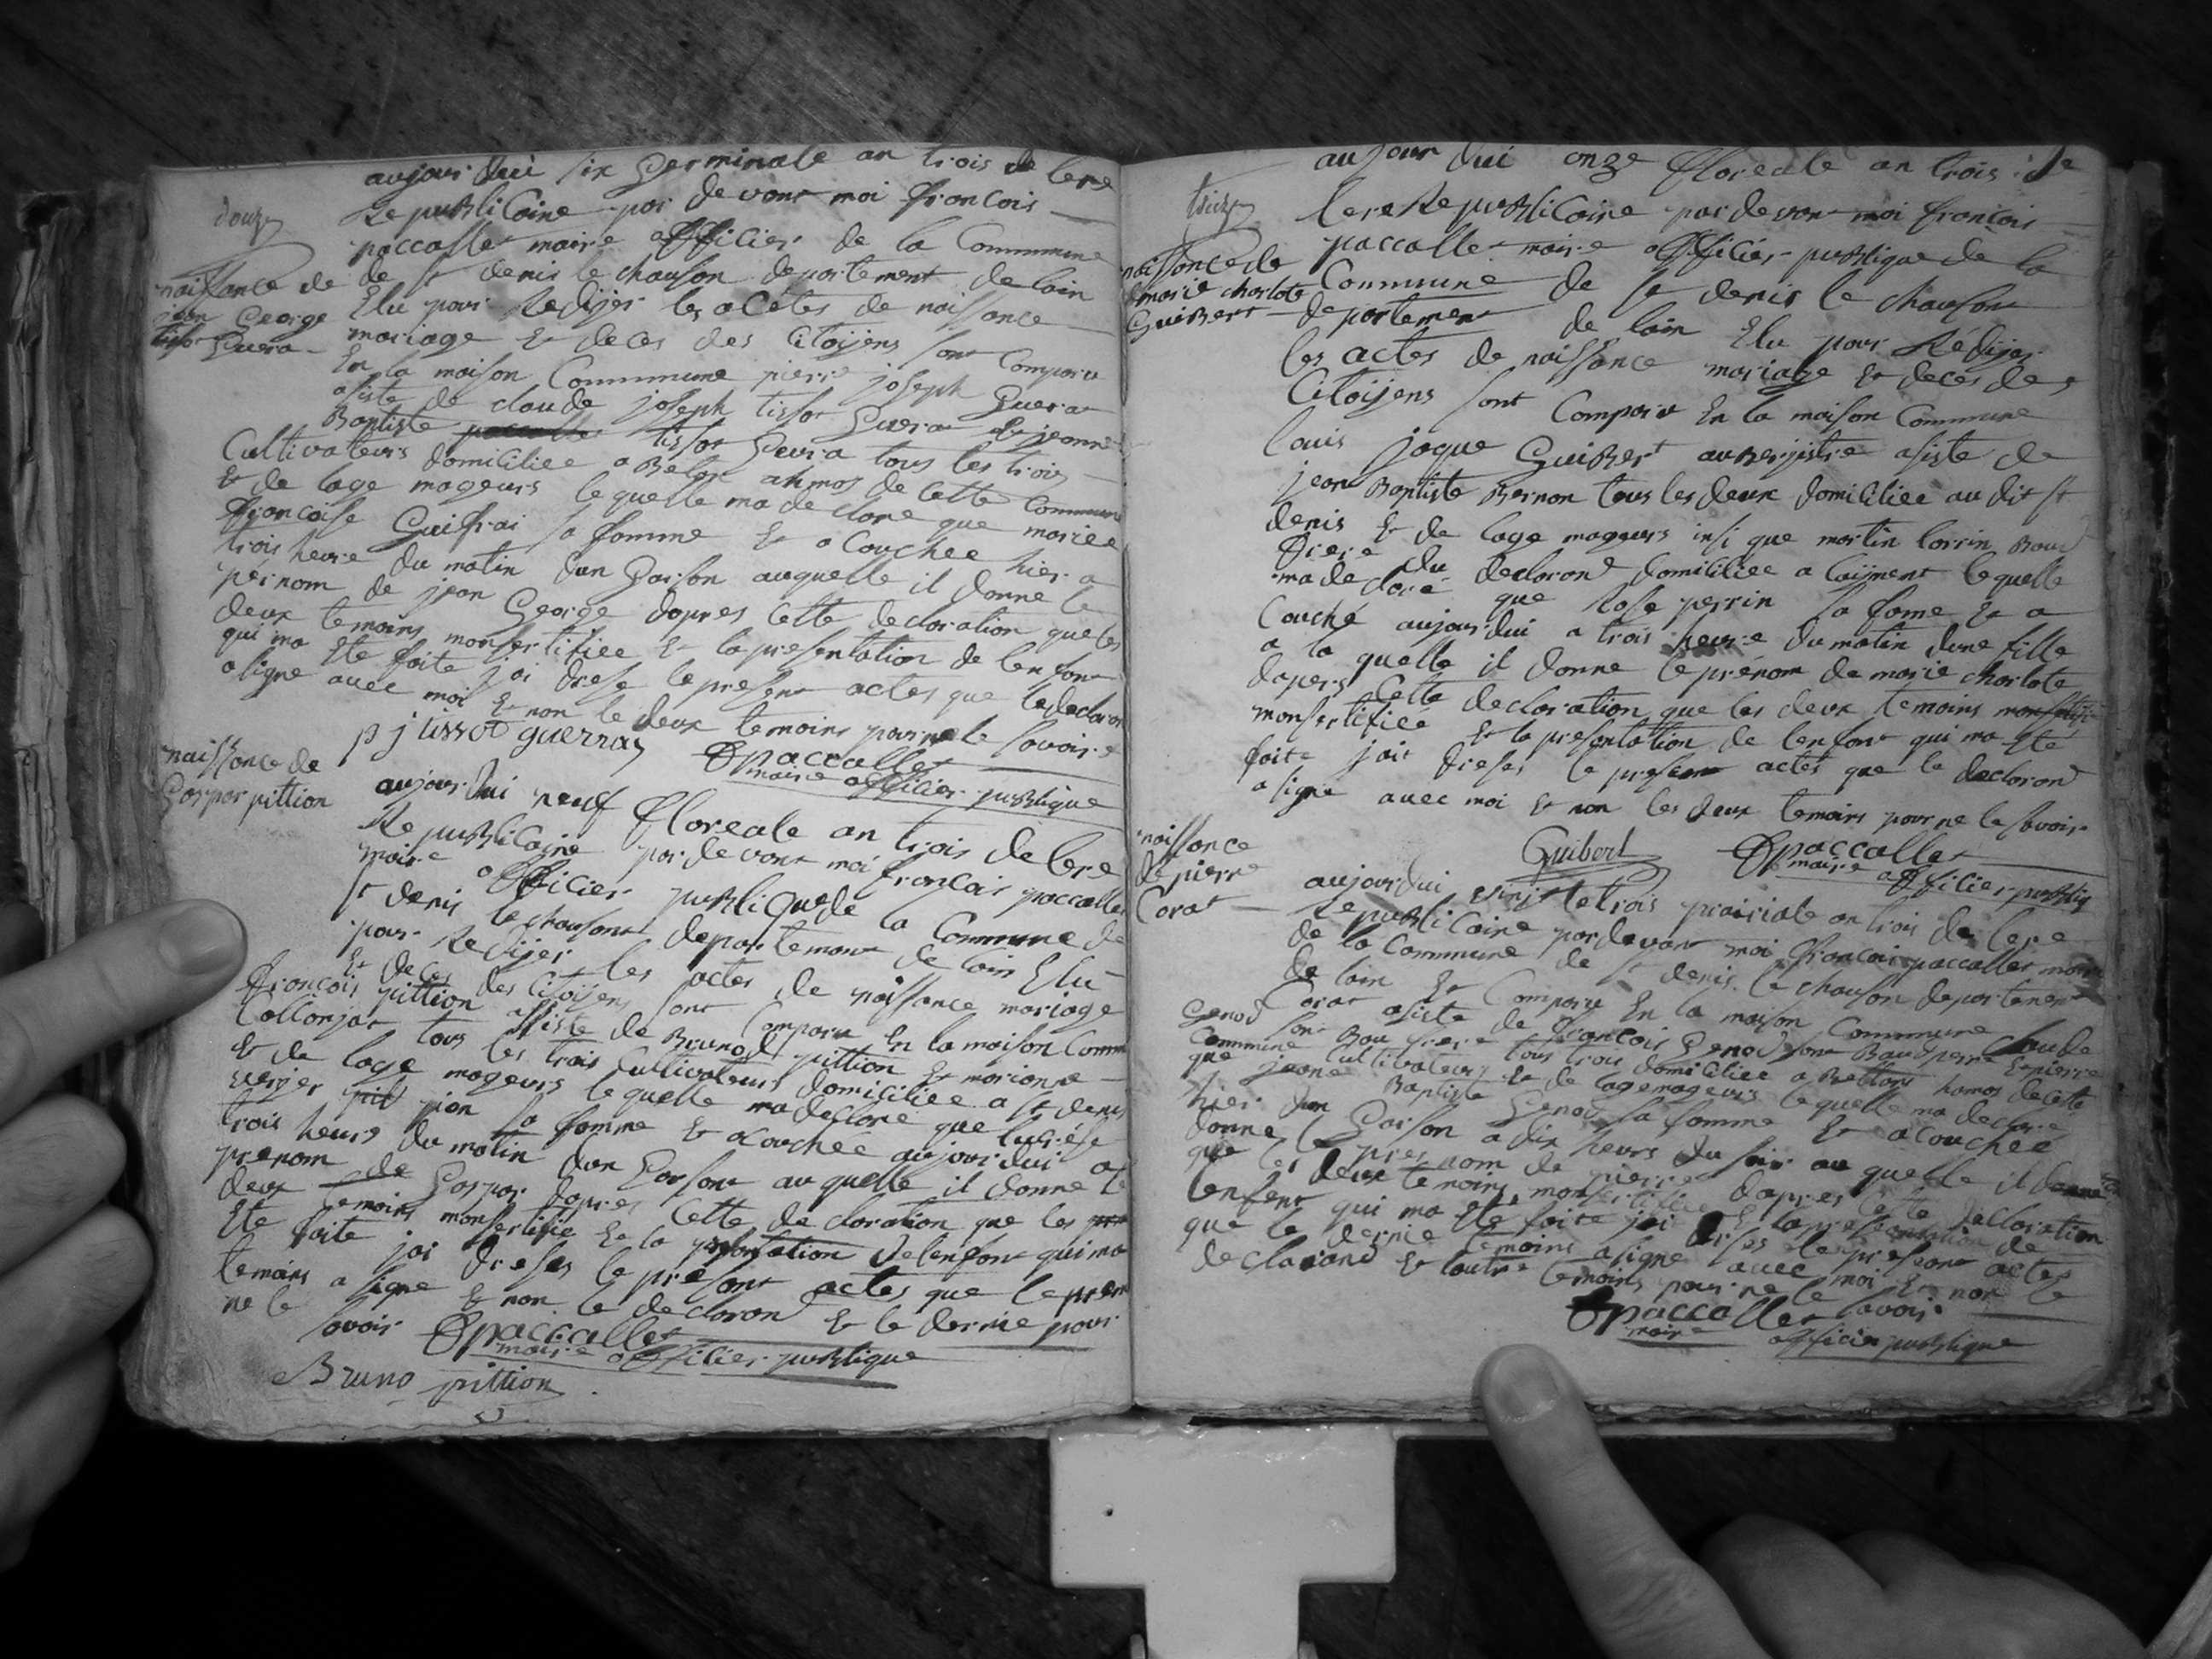 douze
naissance de
jean George
tissot Guera
aujour dui six Germinale an trois de lere
Republicaine par devant moi francois
paccallet maire officier de la Commmune
de st denis le chauson departement de lain
Elu pour Redijer les acetes de naissance
mariage & deces des Citoijens sont Comparu
En la maison Commmune pierre joseph Guerat
asiste de claude joseph tissot Guerat & jeanne
Baptiste tissot Geura tous les trois
Cultivateurs domicilliee a ahmos de Cette Commune
& de lage mageurs le quelle ma declare que mariee
francoise Guifrai sa famme & a Couchee hier a
trois heure du matin dun Garson auquelle il donne le
pernom de jean George dapres Cette declaration que les
deux temoins monsertifiee & la presentation de lenfant
qui ma Ete faite j ai drese le present actes que le declaron
a signe avec moi & non le deux temoins pour ne le savoire
p j tissot guerraz fpaccallet
maire officier publique
naissance de
Gaspar pittion
aujour dui neuf floreale an trois de lere
Republicaine par devant moi francois paccallet
maire officier publique de la Commune de
st denis le chausont departemant de lain Elu
pour Redijer les actes de naissance mariage
& deces des Citoijens sont Comparu En la maison Comm
francois pittion assiste de Bruno pittion & marianne
Collonjat tous les trois Cultivateurs domiciliee a st denis
& de lage mageurs le quelle ma declare que lucrese
verjer pit pion sa famme & acouchee aujour dui a
trois heurs du matin dun Garsont au quelle il donne le
prenom de Gaspar dapres Cette declaration que les
deux temoins monsertifie & la presentation de lenfant qui ma
Ete faite jai dreses le presant actes que le prem
temoins a signe & non le declaron & le dernie pour
ne le savoir fpaccallet
maire officier publique
Bruno pittion
treize
naissance de
marie charlote
Guibert
aujour dui onze floreale an trois de
lere Republicaine par devant moi francois
paccallet maire officier publique de la
Commune de st denis le chausont
departement de lain Elu pour Rédijer
les actes de naissance mariage & deces des
Citoijens sont Comparu En la maison Commune
louis jaque Guibert auberjistre asiste de
jean Baptiste Bernon tous les deux domiciliee au dit st
denis & de lage mageurs insi que martin lorrin Baud
frere du declarond domiciliee a laijment lequelle
ma declaré que Rose perrin sa fame & a
Couché aujour dui a trois heure du matin dune fille
a la quelle il donne le prénom de marie charlote
dapers Cette declaration que les deux temoins
monsertifiee & la presentation de lenfant qui ma Eté
faite jait dreses le present actes que le declarond
a signe avec moi & non les deux temoins pour ne le savoir
Guibert fpaccallet
maire officier publiq
naissance
de pierre
Corat
aujourdui vinjt & trois prairiale an trois de lere
Republicaine par devant moi francois paccallet maire
de la Commune de st denis le chauson departement
de lain & Comparu En la maison Commune Claude
Corat asiste de francois Genod sont Baud perre & pierre
Genod sont Bau frere Cultivateurs tous trois domiciliee a Bellont hamos de Cette
Commune & de lage mageurs le quelle ma declaré
que jeane Baptiste Genod sa famme & acouchée
hier dun Garson a dix heurs du soir au quelle il
donne le prenom de pierre dapres Cette declaration
que les deux temoins monsertifiee & la presentation de
lenfent qui ma ete faite jai drses le present actes
que le dernie temoins a signe avec moi & non le
declarand & lautre temoins pour ne le savoir
fpaccallet
maire officier publique